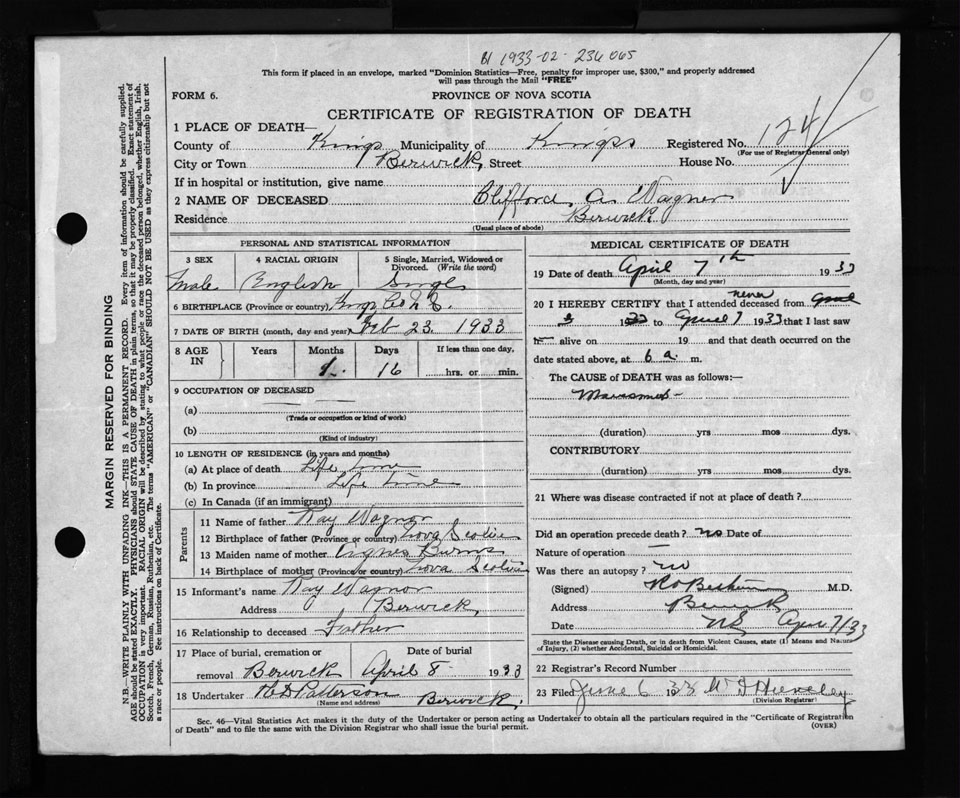 1933-02-236065
This form if placed in an envelope, marked "Dominion Statistics—Free, penalty for improper use, $300," and properly addressed
will pass through the Mail "FREE"
FORM 6.
PROVINCE OF NOVA SCOTIA
CERTIFICATE OF REGISTRATION OF DEATH
1 PLACE OF DEATH—
County of Kings Municipality of Kings Registered No. 124
(For use of Registrar General only)
City or Town Berwick Street House No.
If in hospital or institution, give name
2 NAME OF DECEASED Clifford A. Wagner
Residence Berwick
(Usual place of abode)
PERSONAL AND STATISTICAL INFORMATION
3 SEX
4 RACIAL ORIGIN
5 Single, Married, Widowed or
Divorced. (Write the word)
Male English Single
6 BIRTHPLACE (Province or country) Kings Co N.S.
7 DATE OF BIRTH (month, day and year) Feb 23. 1933
8 AGE IN
Years Months Days If less than one day,
1 16 hrs. or min.
9 OCCUPATION OF DECEASED
(a)
(Trade or occupation or kind of work)
(b)
(Kind of industry)
10 LENGTH OF RESIDENCE (in years and months)
(a) At place of death Life time
(b) In province Life time
(c) In Canada (if an immigrant)
Parents
11 Name of father Ray Wagner
12 Birthplace of father (Province or country) Nova Scotia
13 Maiden name of mother Agnes Burns
14 Birthplace of mother (Province or country) Nova Scotia
15 Informant's name Ray Wagner
Address Berwick
16 Relationship to deceased Father
17 Place of burial, cremation or removal Berwick
Date of burial
April 8 1933
18 Undertaker Patterson Berwick
(Name and address)
MEDICAL CERTIFICATE OF DEATH
19 Date of death April 7th 1933
(Month, day and year)
20 I HEREBY CERTIFY that I attended deceased from
never
to April 7 1933 that I last saw
alive on 19 and that death occurred on the
date stated above, at 6 a. m.
The CAUSE of DEATH was as follows:—
Marasmus
(duration) yrs mos dys.
CONTRIBUTORY
(duration) yrs mos dys.
21 Where was disease contracted if not at place of death?
Did an operation precede death? no Date of
Nature of operation —
Was there an autopsy? no
(Signed) M.D.
Address Berwick
Date N.S. April 7/33
State the Disease causing Death, or in death from Violent Causes, state (1) Means and Nature
of Injury, (2) whether Accidental, Suicidal or Homicidal.
22 Registrar's Record Number
23 Filed June 6 1933
(Division Registrar)
Sec. 46—Vital Statistics Act makes it the duty of the Undertaker or person acting as Undertaker to obtain all the particulars required in the "Certificate of Registration
of Death" and to file the same with the Division Registrar who shall issue the burial permit.
(OVER)
MARGIN RESERVED FOR BINDING
N.B.—WRITE PLAINLY WITH UNFADING INK—THIS IS A PERMANENT RECORD. Every item of information should be carefully supplied.
AGE should be stated EXACTLY. PHYSICIANS should STATE CAUSE OF DEATH in plain terms, so that it may be properly classified. Exact statement of
OCCUPATION is very important. RACIAL ORIGIN will be described by stating to what people or race the deceased person belonged, whether English, Irish,
Scotch, French, German, Russian, Ruthenian, etc. The terms "AMERICAN" or "CANADIAN" SHOULD NOT BE USED as they express citizenship but not
a race or people. See instructions on back of Certificate.